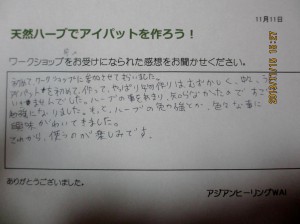 11月11日
天然ハーブでアイパットを作ろう！
ワークショップをお受けになられた感想をお聞かせください。
初めてワークショップに参加させてもらいました。
アイパットを初めて、作って、やっぱり手作りは、むずかしく、
いきませんでした。ハーブの事をあまり、知らなかったので すごい
勉強になりました。もっと、ハーブの効力とか、色々な事に
興味がわいてきました。
これから、使うのが楽しみです。
ありがとうございました。
アジアンヒーリングWAI